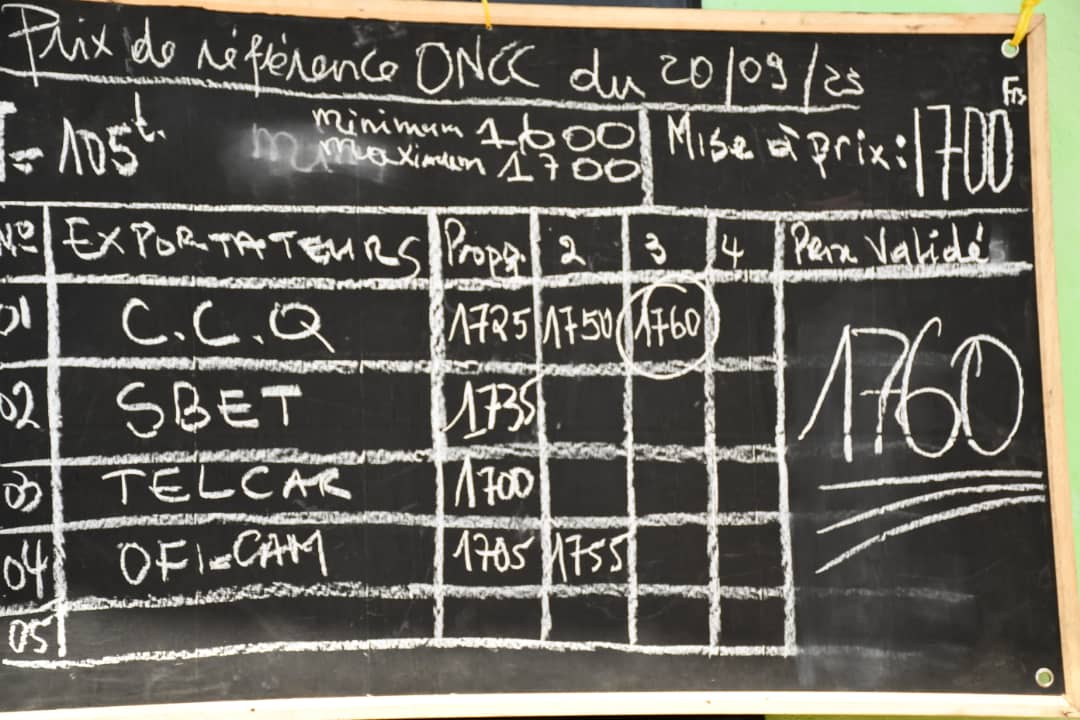 Prix de référence ONCC du 20/09/23
= 105t.
minimum 1600
maximum 1700
Mise à prix: 1700 Frs
N° EXPORTATEURS Prop 2 3 4 Prix Validé
01 C.C.Q 1725 1750 1760
1760
02 SBET 1735
03 TELCAR 1700
04 OFI-CAM 1705 1755
05